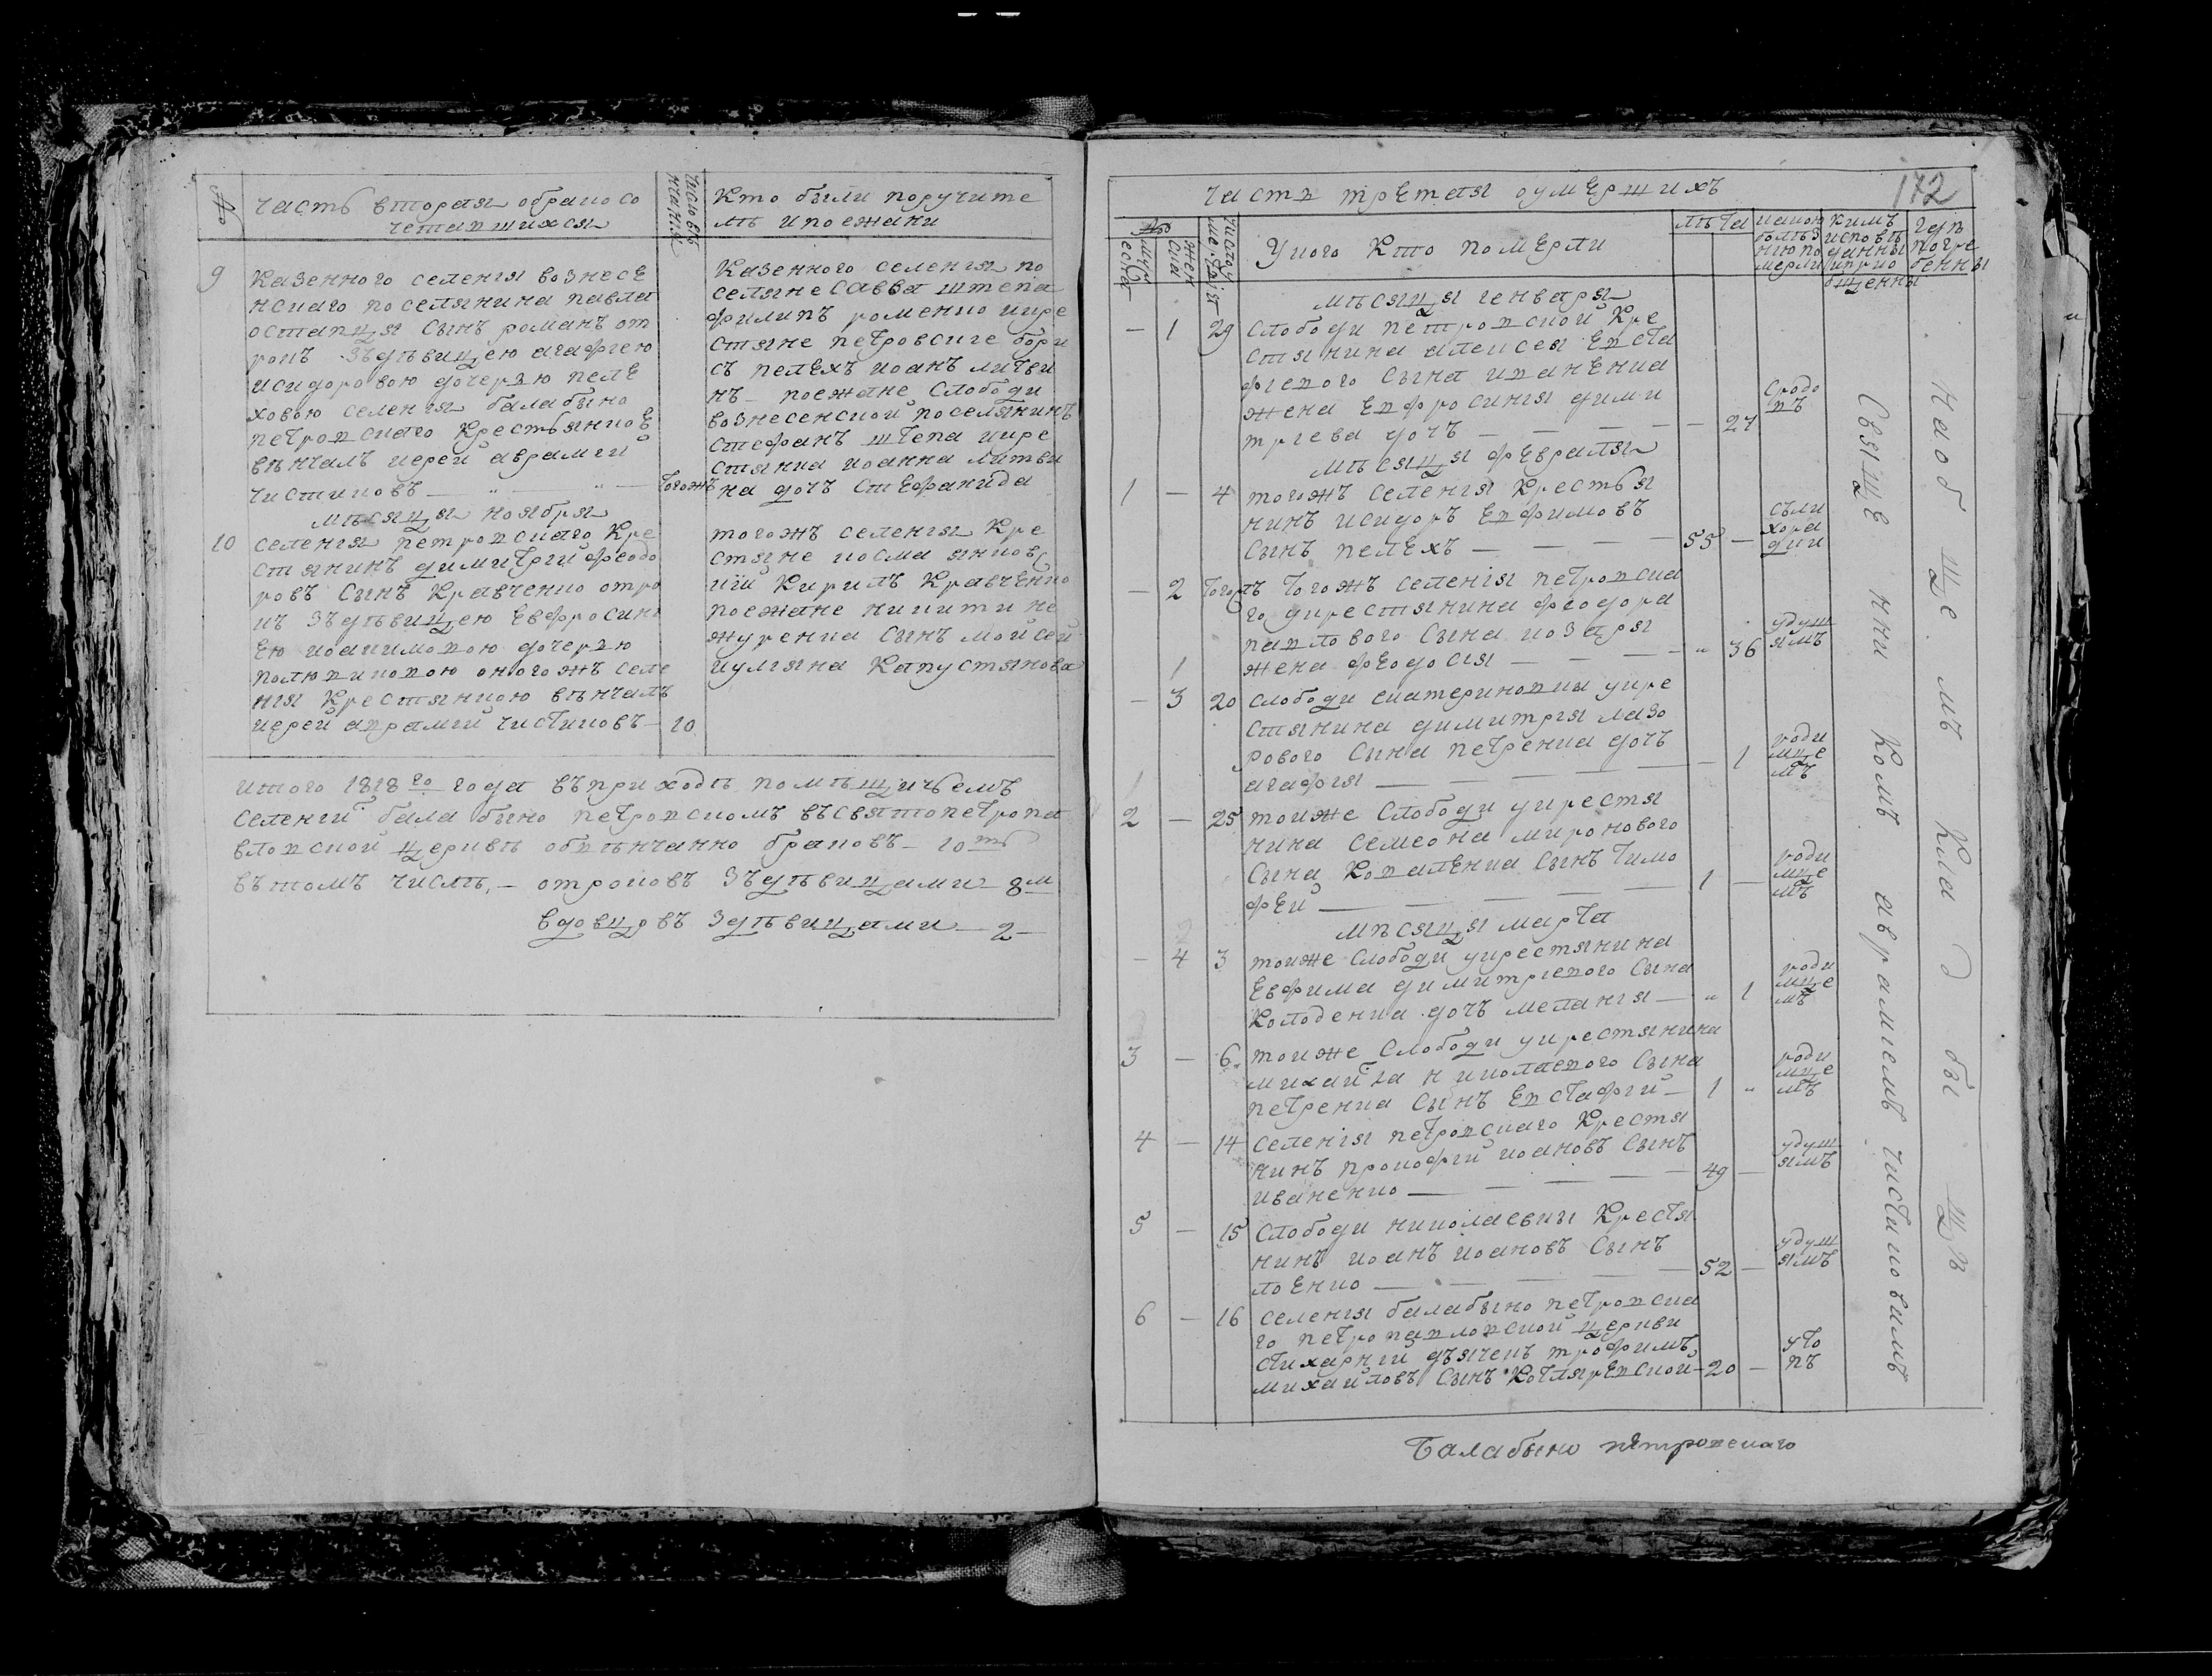 №
часть вторая обрако со
четавшихся
число въ
нчанн.
Кто были поручите
лѣ и поезжани
9
Казенного селенія вознесе
нскаго поселянина павла
остапця сынъ романъ от
рокъ зъдѣвицею агафіею
исидоровою дочерью пеле
ховою селенія балабыно
петровскаго крестьянкоѣ
вѣнчалъ иерей аврамій
чистиковъ
тогожъ
Казенного селенія по
селяне савва штепа
филипъ роменко икре
стяне петровскіе бори
съ пелехъ иоанъ литви
нъ – поезжане слободи
вознесенской поселянинъ
стефанъ штепа икре
стянка иоанна литви
на дочъ стефанида
мѣсяця ноября
10
селенія петровскаго кре
стянинъ димитрій феодо
ровъ сынъ кравченко отро
къ зъдѣвицею евфросині
ею иоакимовою дочерью
полювиковою оногожъ селе
нія крестянкою вѣнчалъ
иерей аврамій чистиковъ
10
тогожъ селенія кре
стяне косма янков
кій кирилъ кравченко
поезжане никити не
журенка сынъ мойсей
иуліяна капустянова
итого 1818 го года въ приходѣ помѣщичьемъ
селеніи балабыно петровскомъ въ святопетропа
вловской церквѣ обвѣнчанно браковъ – 10 ть
въ томъ числѣ, – отроковъ зъдѣвицами – 8 м
вдовцовъ здѣвицами 2 –
172
часть третая оумершихъ
№
муж
еска
жен
ска
число
умертія
У кого Кто померли
лѣта
какою
болѣз
нію по
мерли
кимъ
исповѣ
данны
и прио
бщенны
гдѣ
погре
бенны
мѣсяця генваря
– 1 29 слободи петровской кре
стянина алексея евста
фіевого сына иваненка
жена евфросинія дими
тріева дочъ – 27
сродо
въ
мѣсяця февраля
1 – 4 тогожъ селенія крестья
нинъ исидоръ ефимовъ
сынъ пелехъ 55 –
съли
хора
дки
– 2 тогожъ тогожъ селенія петровска
го укрестянина феодора
павлового сына козыря
жена феодосія 36
удуш
ямъ
– 3 20 слободи екатериновки укре
стянина димитрія лазо
рового сына петренка дочъ
агафія – 1
роди
мце
мъ
2 – 25 тоиже слободи укрестя
нина семеона миронового
сына коваленка сынъ тимо
фей 1 –
роди
мце
мъ
мѣсяця марта
– 4 3 тоиже слободи укрестянина
евфима димитріевого сына
колоденка дочъ меланія – 1
роди
мце
мъ
3 – 6 тоиже слободи укрестянина
михайла николаевого сына
петренка сынъ евстафій – 1
роди
мце
мъ
4 – 14 селенія петровскаго крестя
нинъ прокофій иоановъ сынъ
иваненко 49 –
удуш
ямъ
5 – 15 слободи николаевки крестя
нинъ иоанъ иоановъ сынъ
лоенко 52 –
удуш
ямъ
6 – 16 селенія балабыно петровска
го петропавловской церкви
стихарній дьячекъ трофимъ
михайловъ сынъ котляревской – 20 –
уто
пъ
священникомъ аврамiемъ чистиковимъ
на общемъ кладбыщѣ
Балабыно петровского